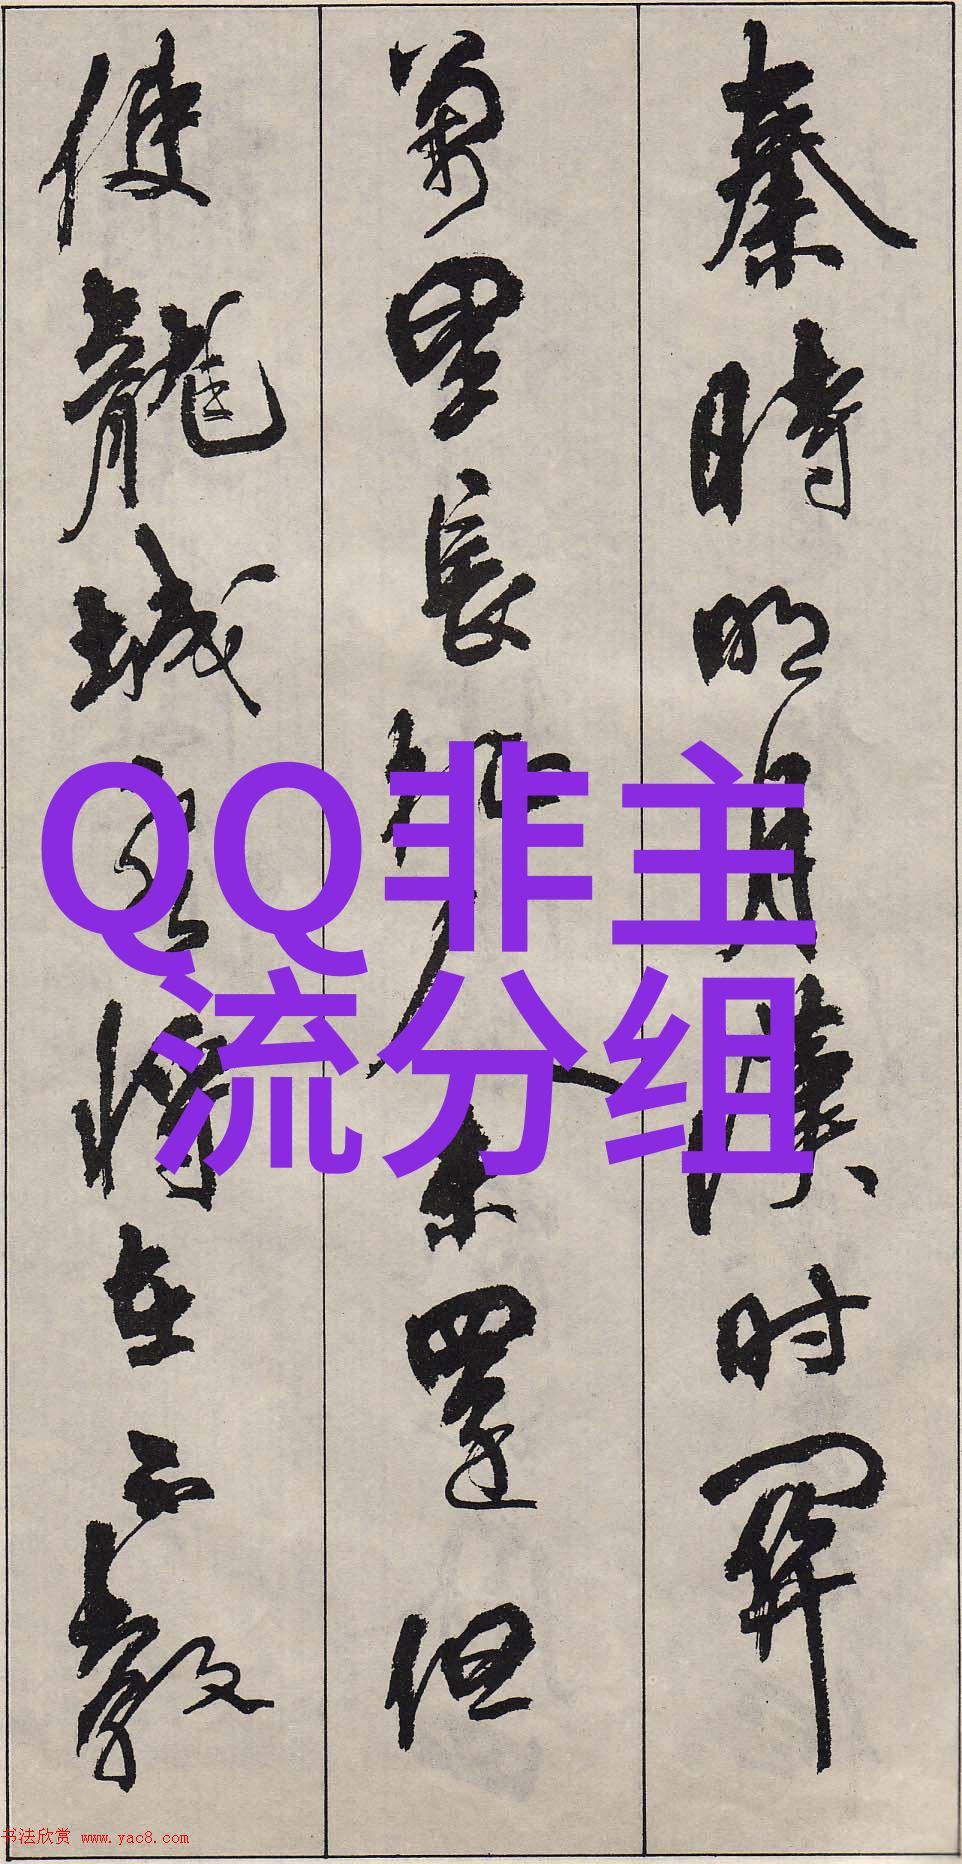 秦時明月漢时関
萬里長征人未還但
使龍城飛将在不教
QQ非主
流分组
书法欣赏 www.yac8.com